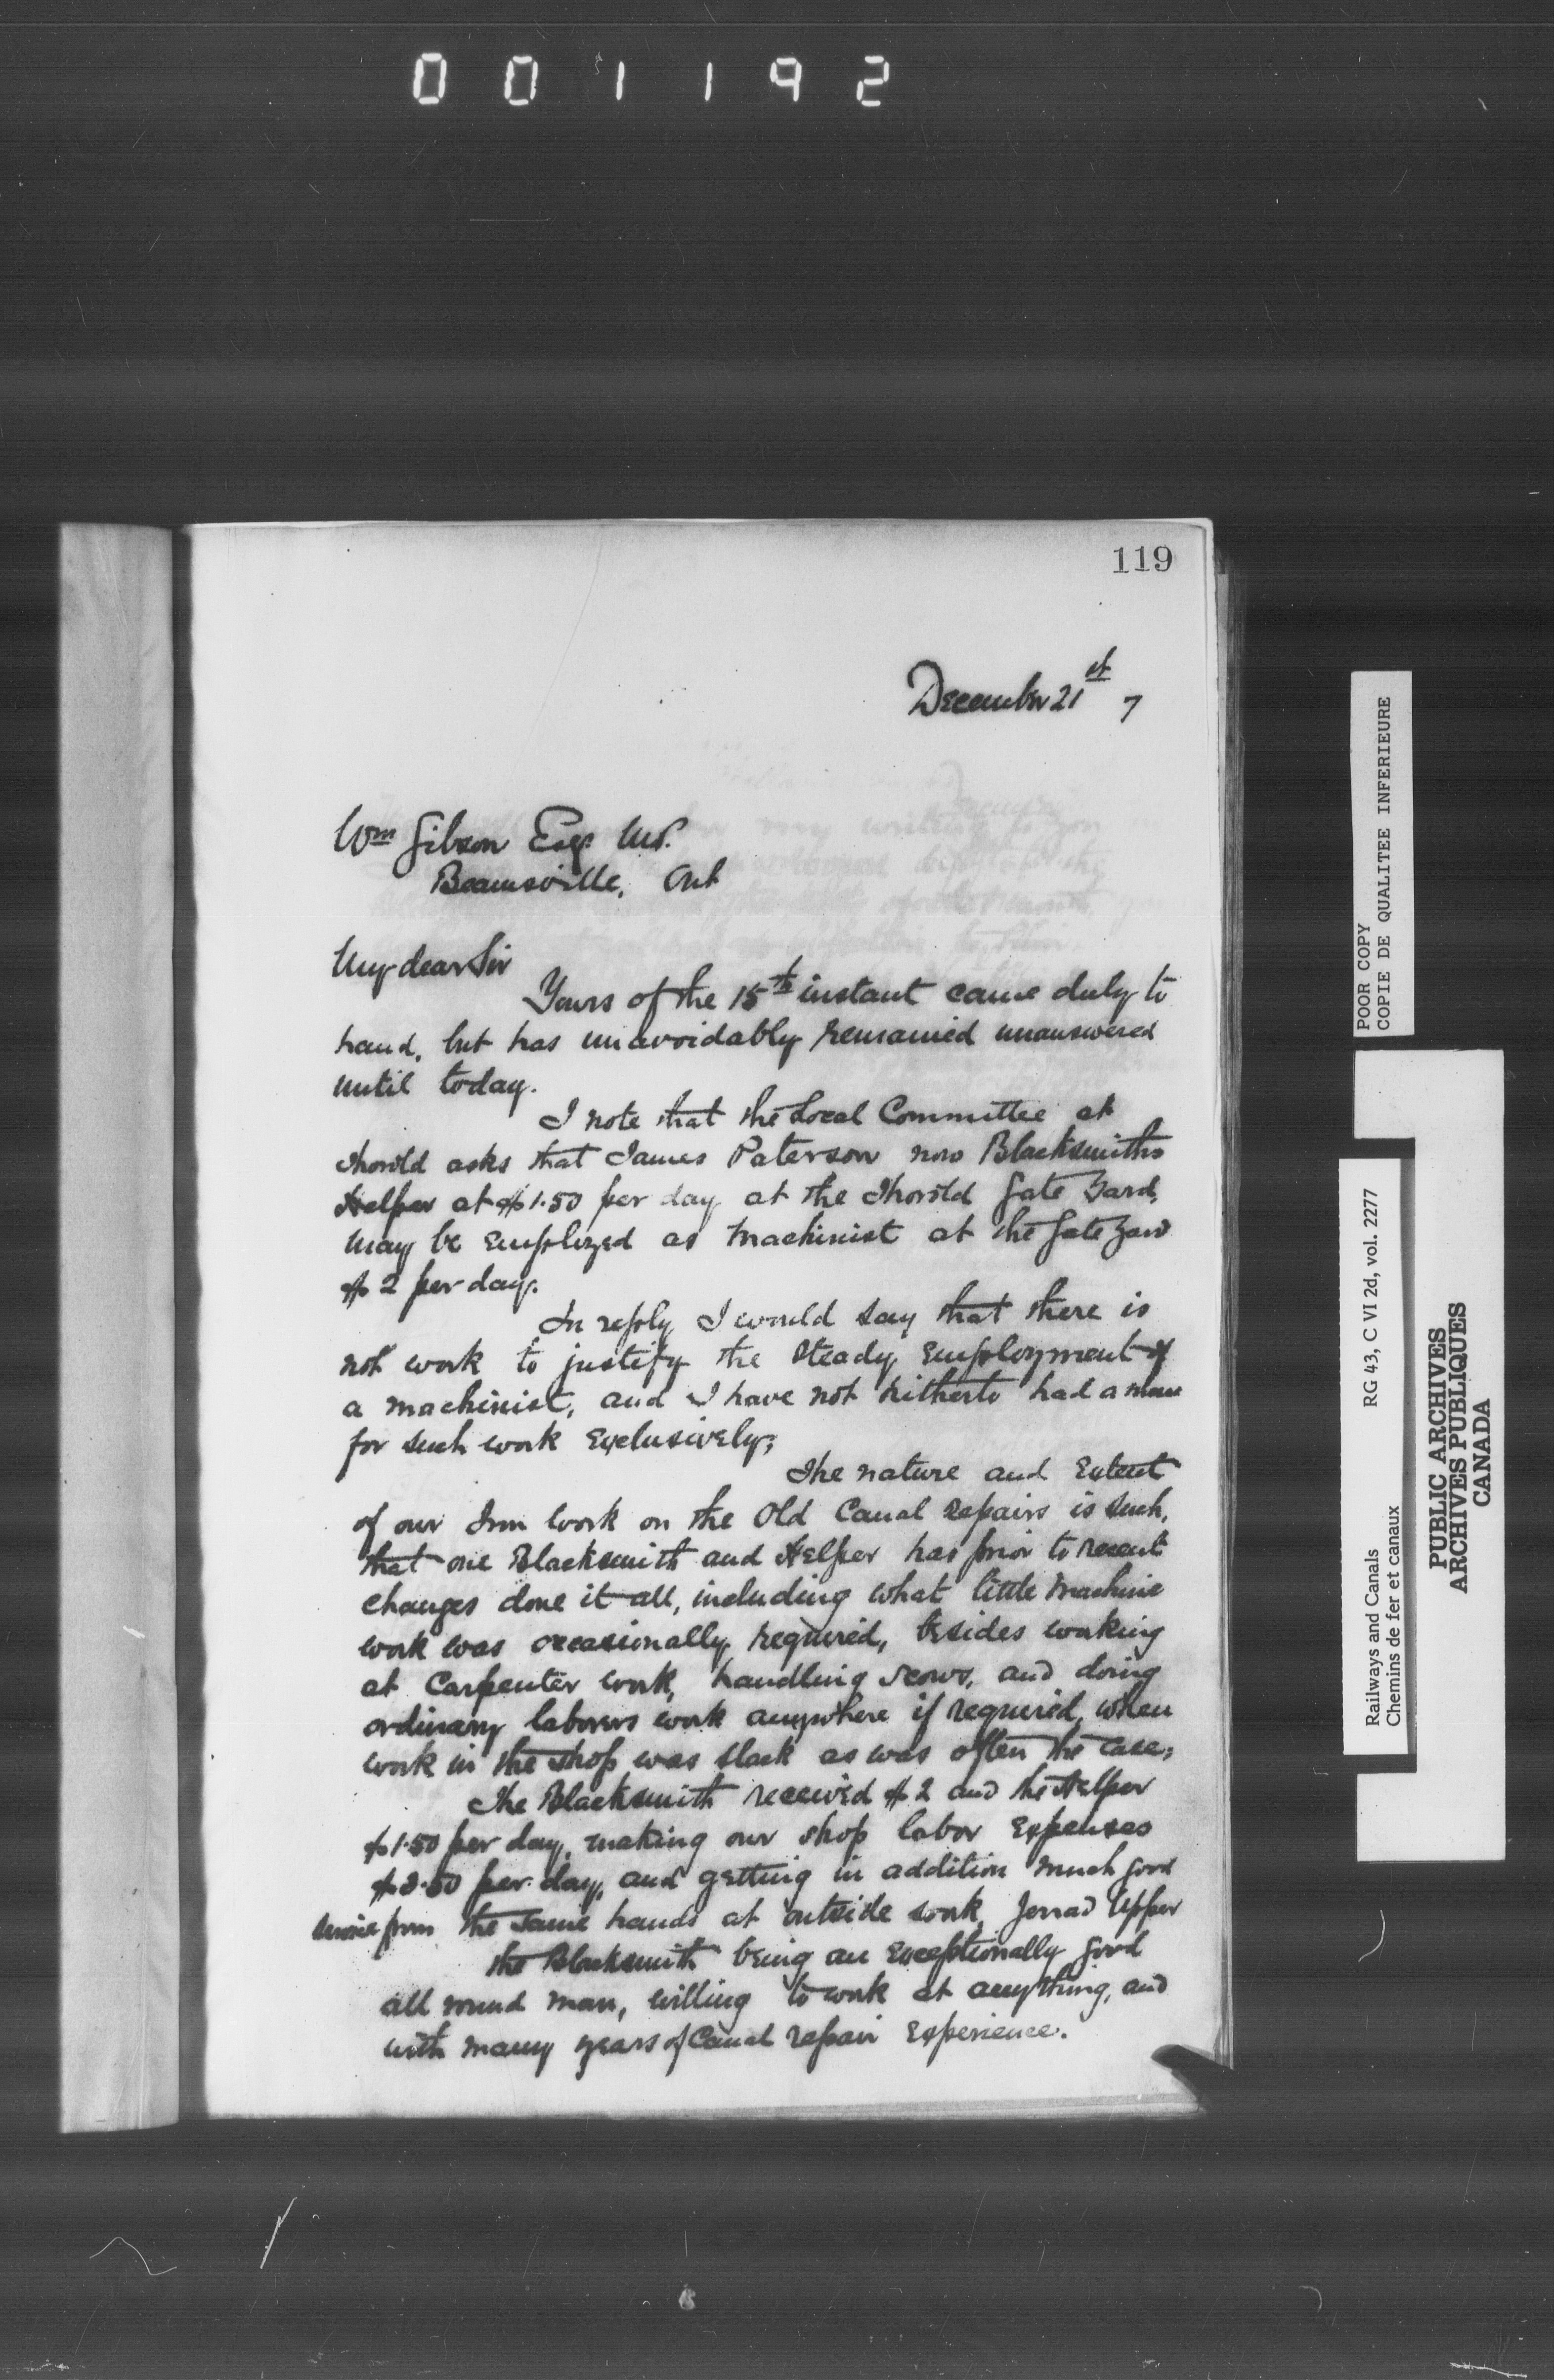 001192
119
December 21st 7
Wm Gibson Esq. M.P.
Beamsville, Ont
My dear Sir
Yours of the 15th instant came duly to
hand, but has unavoidably remained unanswered
until today.
I note that the Local Committee at
Thorold asks that James Paterson now Blacksmiths
Helper at $1.50 per day at the Thorold Gate Yard,
may be employed as machinist at the Gate Yard
$2 per day.
In reply I would say that there is
not work to justify the steady employment of
a machinist, and I have not hitherto had a man
for such work exclusively;
The nature and extent
of our Iron work on the Old Canal repairs is such,
that one Blacksmith and Helper has prior to recent
changes done it all, including what little machine
work was occasionally required, besides working
at Carpenter work, handling scows, and doing
ordinary laborers work anywhere if required, when
work in the shop was slack as was often the case;
The Blacksmith received $2 and the Helper
$1.50 per day, making our shop labor expenses
$3.50 per day, and getting in addition much good
from the same hands at outside work, Jerrad Upper
the Blacksmith being an exceptionally good
all round man, willing to work at anything, and
with many years of Canal repair experience.
POOR COPY
COPIE DE QUALITEE INFERIEURE
Railways and Canals RG 43, C VI 2d, vol. 2277
Chemins de fer et canaux
PUBLIC ARCHIVES
ARCHIVES PUBLIQUES
CANADA